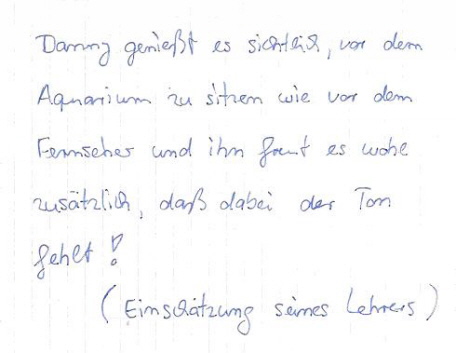 genießt es sichtlich, vor dem
Aquarium zu sitzen wie vor dem
Fernseher und ihn freut es wohl
zusätzlich, daß dabei der Ton
fehlt!
(Einschätzung seines Lehrers)